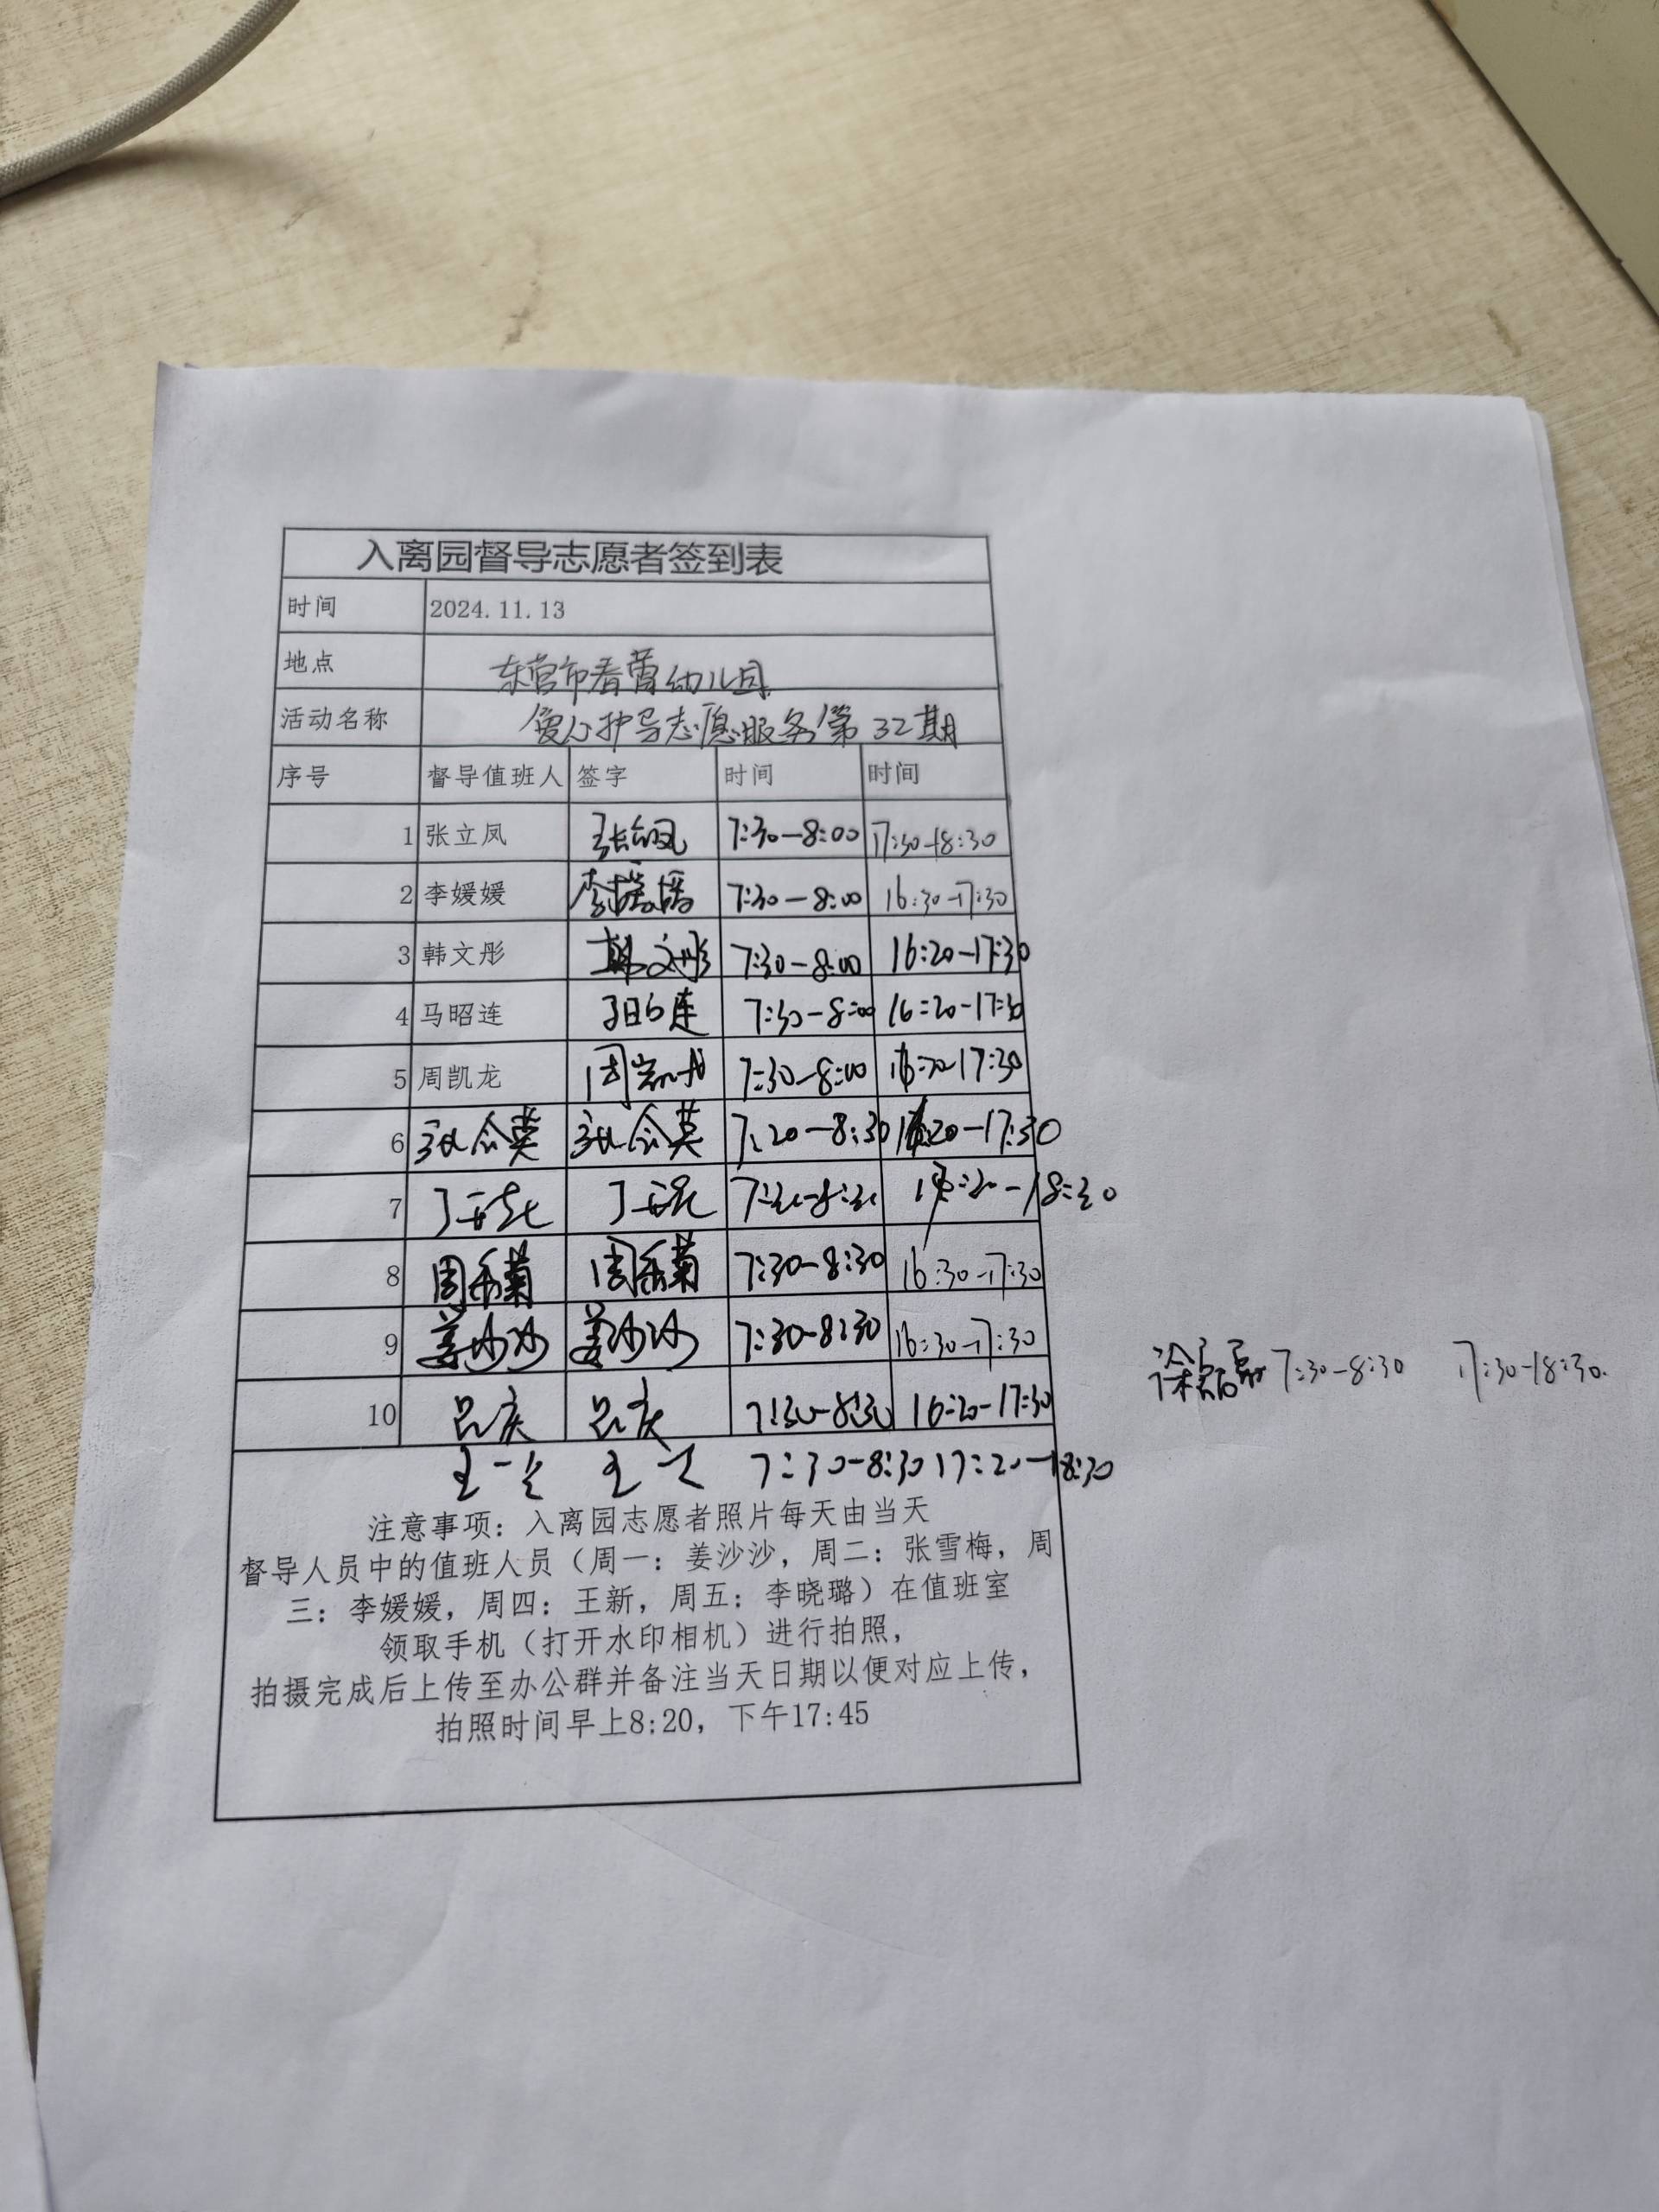 入离园督导志愿者签到表
时间 2024.11.13
地点 东营市春蕾幼儿园
活动名称 护导志愿服务第32期
序号 督导值班人 签字 时间 时间
1 张立凤 张立凤 7:30-8:00 17:30-18:30
2 李媛媛 李媛媛 7:30-8:00 16:30-17:30
3 韩文彤 韩文彤 7:30-8:00 16:20-17:30
4 马昭连 马昭连 7:30-8:00 16:20-17:30
5 周凯龙 周凯龙 7:30-8:00 17:30
6 7:20-8:30 16:20-17:30
7 丁 丁 18:30
8 周秀菊 周秀菊 7:30-8:30 16:30-17:30
9 姜沙沙 姜沙沙 7:30-8:30 16:30-17:30
徐 7:30-8:30 17:30-18:30.
10 吕庆 吕庆 7:30-8:30 16:20-17:30
王一 王一 7:30-8:30 17:20-18:30
注意事项：入离园志愿者照片每天由当天
督导人员中的值班人员（周一：姜沙沙，周二：张雪梅，周
三：李媛媛，周四：王新，周五：李晓璐）在值班室
领取手机（打开水印相机）进行拍照，
拍摄完成后上传至办公群并备注当天日期以便对应上传，
拍照时间早上8:20，下午17:45